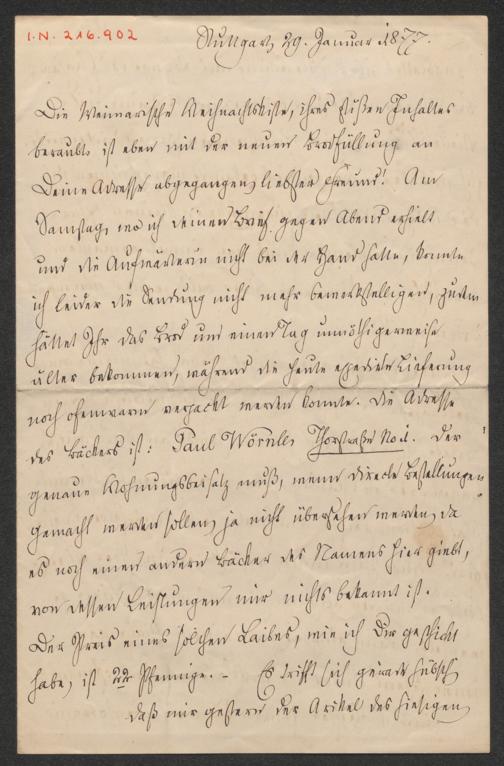 I.N. 216.902
Stuttgart, 29. Januar 1877.
Die Weimarische Weihnachtskiste, ihres süßen Inhaltes
beraubt, ist eben mit der neuen Brodfüllung an
Deine Adresse abgegangen, liebster Freund! Am
Samstag, wo ich deinen Brief gegen Abend erhielt
und die Aufwärterin nicht bei der Hand hatte, konnte
ich leider die Sendung nicht mehr bewerkstelligen, zudem
hättet Ihr das Brod um einen Tag unnöthigerweise
älter bekommen, während die heute expedirte Lieferung
noch ofenwarm verpackt werden konnte. Die Adresse
des Bäckers ist: Paul Wörnle, Thorstraße No 1. Der
genaue Wohnungsbeisatz muß, wenn directe Bestellungen
gemacht werden sollen, ja nicht übersehen werden, da
es noch einen andern Bäcker des Namens hier giebt,
von dessen Leistungen mir nichts bekannt ist.
Der Preis eines solchen Laibes, wie ich Dir geschickt
habe, ist 22 Pfennige. – Es trifft sich gerade hübsch,
daß mir gestern der Artikel des hiesigen